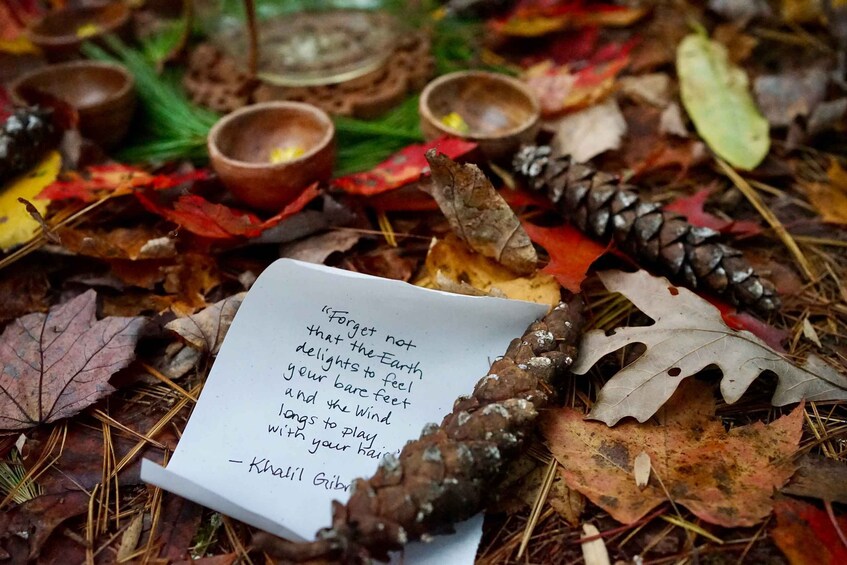 "Forget not
that the Earth
delights to feel
your bare feet
and the Wind
longs to play
with your hair
– Khalil Gibr